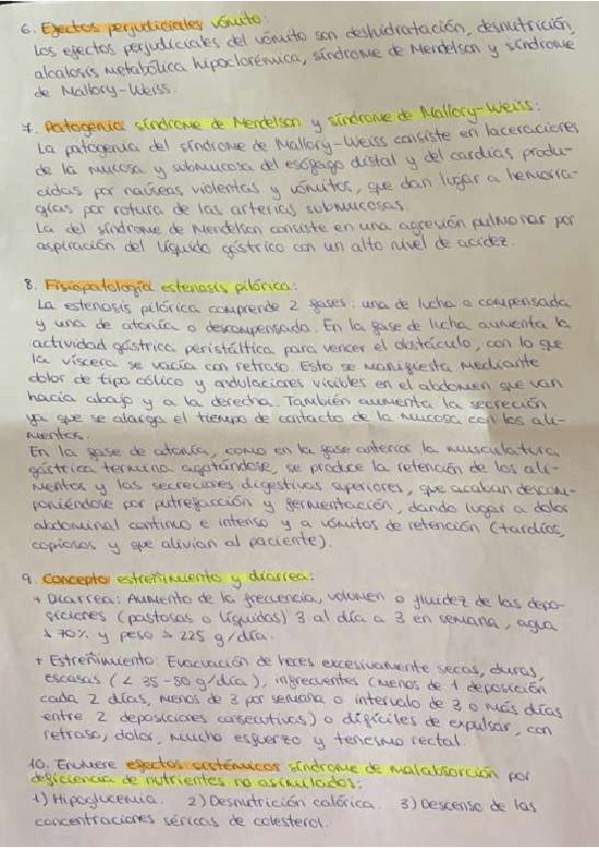 6. Efectos perjudiciales vómito:
Los efectos perjudiciales del vómito son deshidratación, desnutrición,
alcalosis metabólica hipoclorémica, síndrome de Mendelson y síndrome
de Mallory-Weiss.
7. Patogenia síndrome de Mendelson y síndrome de Mallory-Weiss:
La patogenia del síndrome de Mallory-Weiss consiste en laceraciones
de la mucosa y submucosa del esófago distal y del cardias produ-
cidas por náuseas violentas y vómitos, que dan lugar a hemorra-
gias por rotura de las arterias submucosas.
La del síndrome de Mendelson consiste en una agresión pulmonar por
aspiración del líquido gástrico con un alto nivel de acidez.
8. Fisiopatología estenosis pilórica:
La estenosis pilórica comprende 2 fases: una de lucha o compensada
y una de atonía o descompensada. En la fase de lucha aumenta la
actividad gástrica peristáltica para vencer el obstáculo, con lo que
la víscera se vacía con retraso. Esto se manifiesta mediante
dolor de tipo cólico y ondulaciones visibles en el abdomen que van
hacia abajo y a la derecha. También aumenta la secreción
ya que se alarga el tiempo de contacto de la mucosa con los ali-
mentos.
En la fase de atonía, como en la fase anterior la musculatura
gástrica termina agotándose, se produce la retención de los ali-
mentos y las secreciones digestivas superiores, que acaban descom-
poniéndose por putrefacción y fermentación, dando lugar a dolor
abdominal continuo e intenso y a vómitos de retención (tardíos,
copiosos y que alivian al paciente).
9. Concepto estreñimiento y diarrea:
+ Diarrea: Aumento de la frecuencia, volumen o fluidez de las depo-
siciones (pastosas o líquidas) 3 al día a 3 en semana, agua
> 70% y peso > 225 g/día.
+ Estreñimiento: Evacuación de heces excesivamente secas, duras,
escasas (< 35-50 g/día), infrecuentes (menos de 1 deposición
cada 2 días, menos de 3 por semana o intervalo de 3 o más días
entre 2 deposiciones consecutivas) o difíciles de expulsar, con
retraso, dolor, mucho esfuerzo y tenesmo rectal.
10. Enumere efectos sistémicos síndrome de malabsorción por
deficiencia de nutrientes no asimilados:
1) Hipoglucemia. 2) Desnutrición calórica. 3) Descenso de las
concentraciones séricas de colesterol.